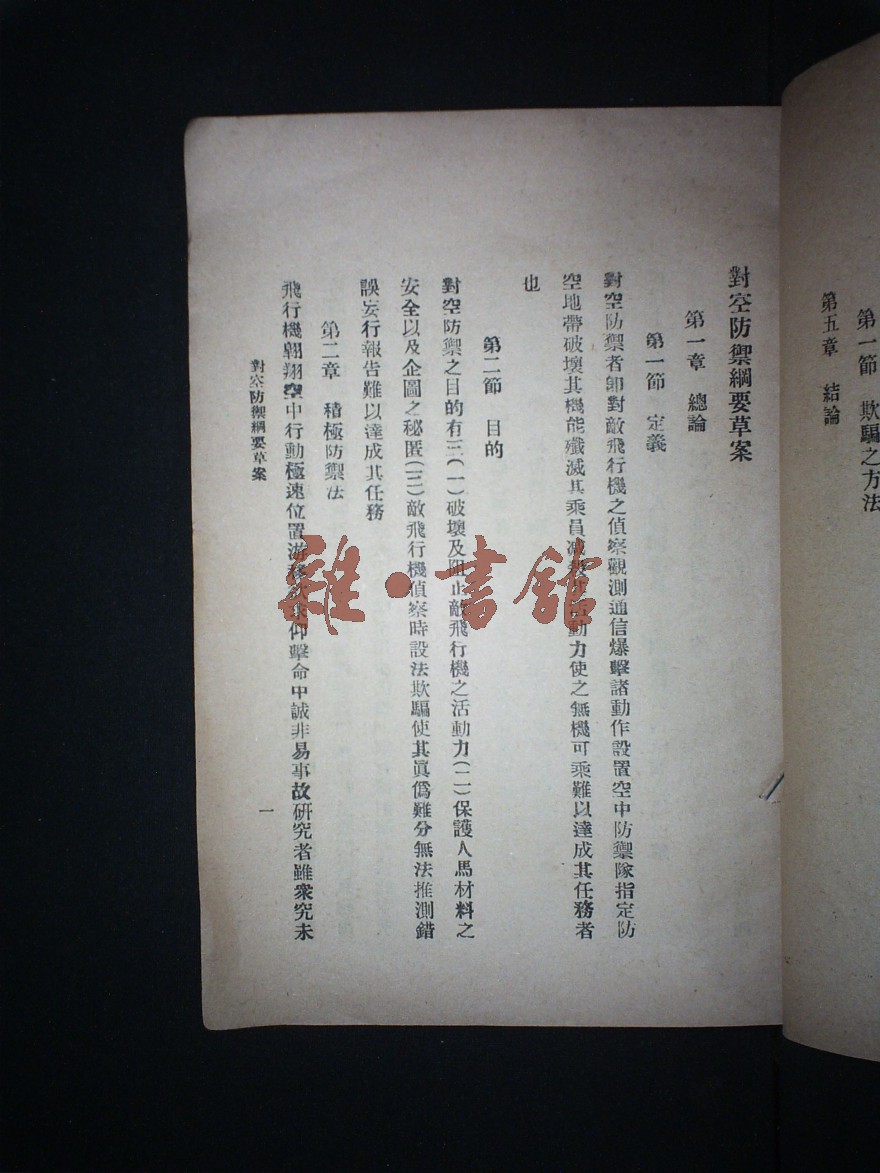 第一節　欺騙之方法
第五章　結論
對空防禦綱要草案
第一章　總論
第一節　定義
對空防禦者卽對敵飛行機之偵察觀測通信爆擊諸動作設置空中防禦隊指定防
空地帶破壞其機能殲滅其乘員減動力使之無機可乘難以達成其任務者
也
第二節　目的
對空防禦之目的有三(一)破壞及阻止敵飛行機之活動力(二)保護人馬材料之
安全以及企圖之秘匿(三)敵飛行機偵察時設法欺騙使其眞僞難分無法推測錯
誤妄行報告難以達成其任務
第二章　積極防禦法
飛行機翺翔空中行動極速位置游仰擊命中誠非易事故研究者雖衆究未
對空防禦綱要草案
一
雜·書館